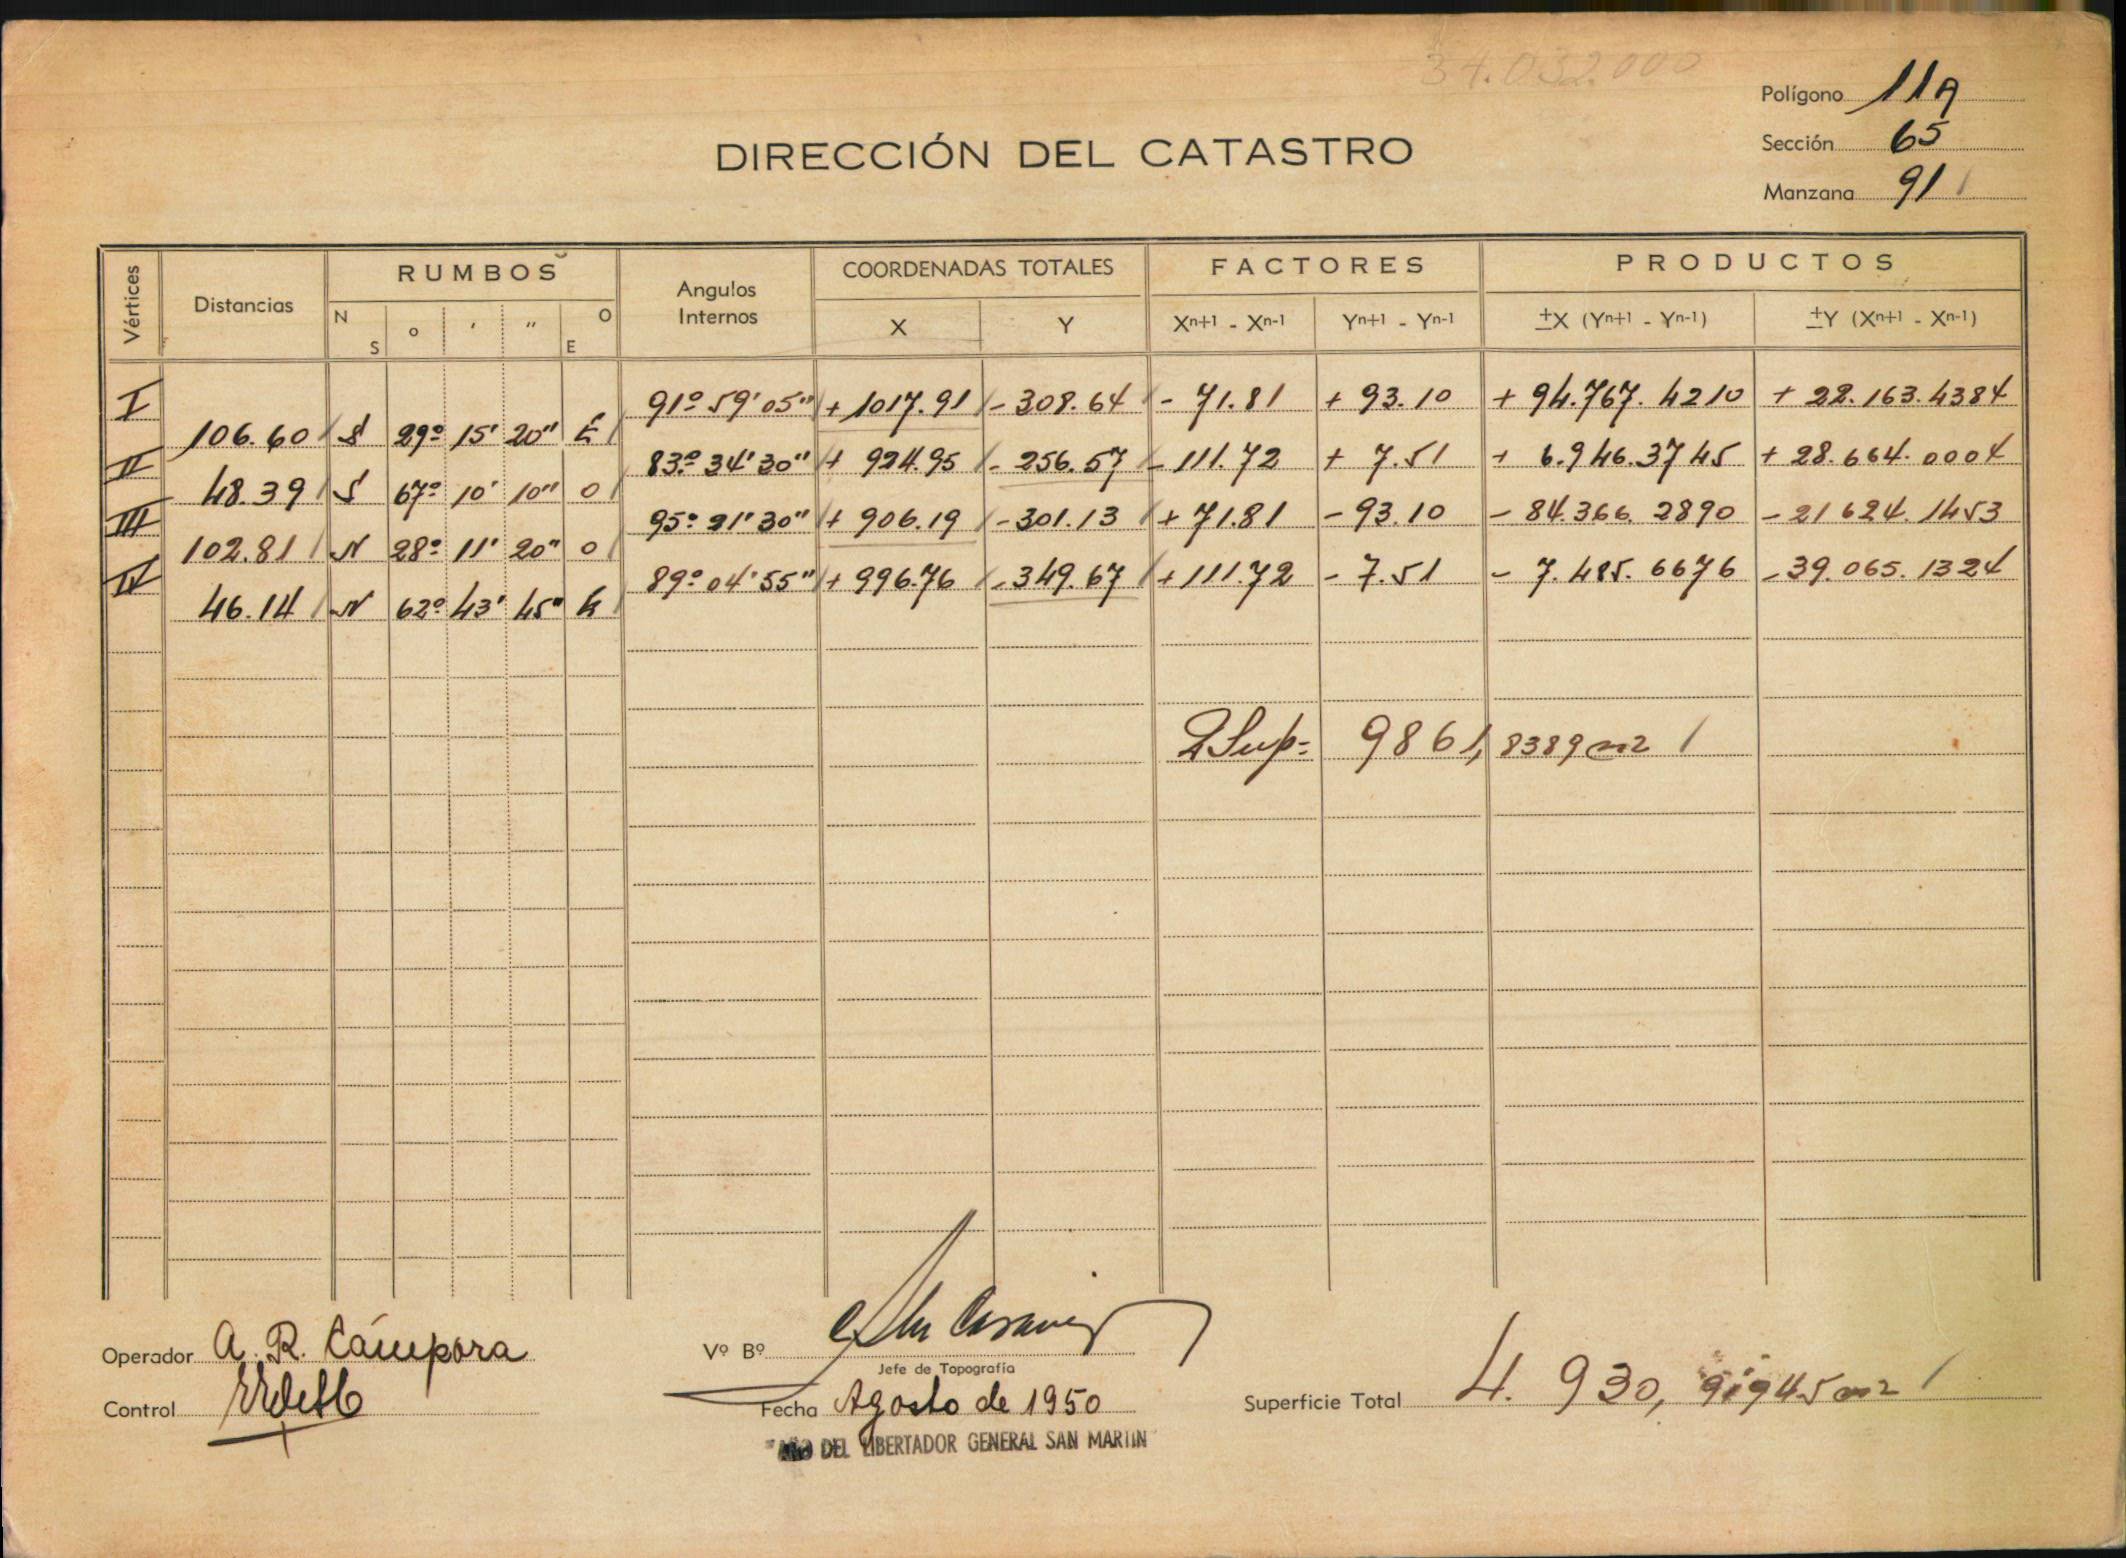 34.032.000
Polígono 11A
Sección 65
Manzana 91
DIRECCIÓN DEL CATASTRO
Vértices Distancias RUMBOS Angulos Internos COORDENADAS TOTALES FACTORES PRODUCTOS
N S o ' '' O E X Y Xn+1 - Xn-1 Yn+1 - Yn-1 ±X (Yn+1 - Yn-1) ±Y (Xn+1 - Xn-1)
I 91º 59' 05" + 1017.91 - 308.64 - 71.81 + 93.10 + 94.767.4210 + 22.163.4384
106.60 S 29º 15' 20" E
II 83º 34' 30" + 924.95 - 256.57 - 111.72 + 7.51 + 6.946.3745 + 28.664.0004
48.39 S 67º 10' 10" O
III 95º 21' 30" + 906.19 - 301.13 + 71.81 - 93.10 - 84.366.2890 - 21624.1453
102.81 N 28º 11' 20" O
IV 89º 04' 55" + 996.76 - 349.67 + 111.72 - 7.51 - 7.485.6676 - 39.065.1324
46.14 N 62º 43' 45" E
2Sup= 9861,8389 m2
Operador A. R. Cámpora
Control
Vº Bº
Jefe de Topografía
Fecha Agosto de 1950
"AÑO DEL LIBERTADOR GENERAL SAN MARTIN"
Superficie Total 4.930,91945 m2